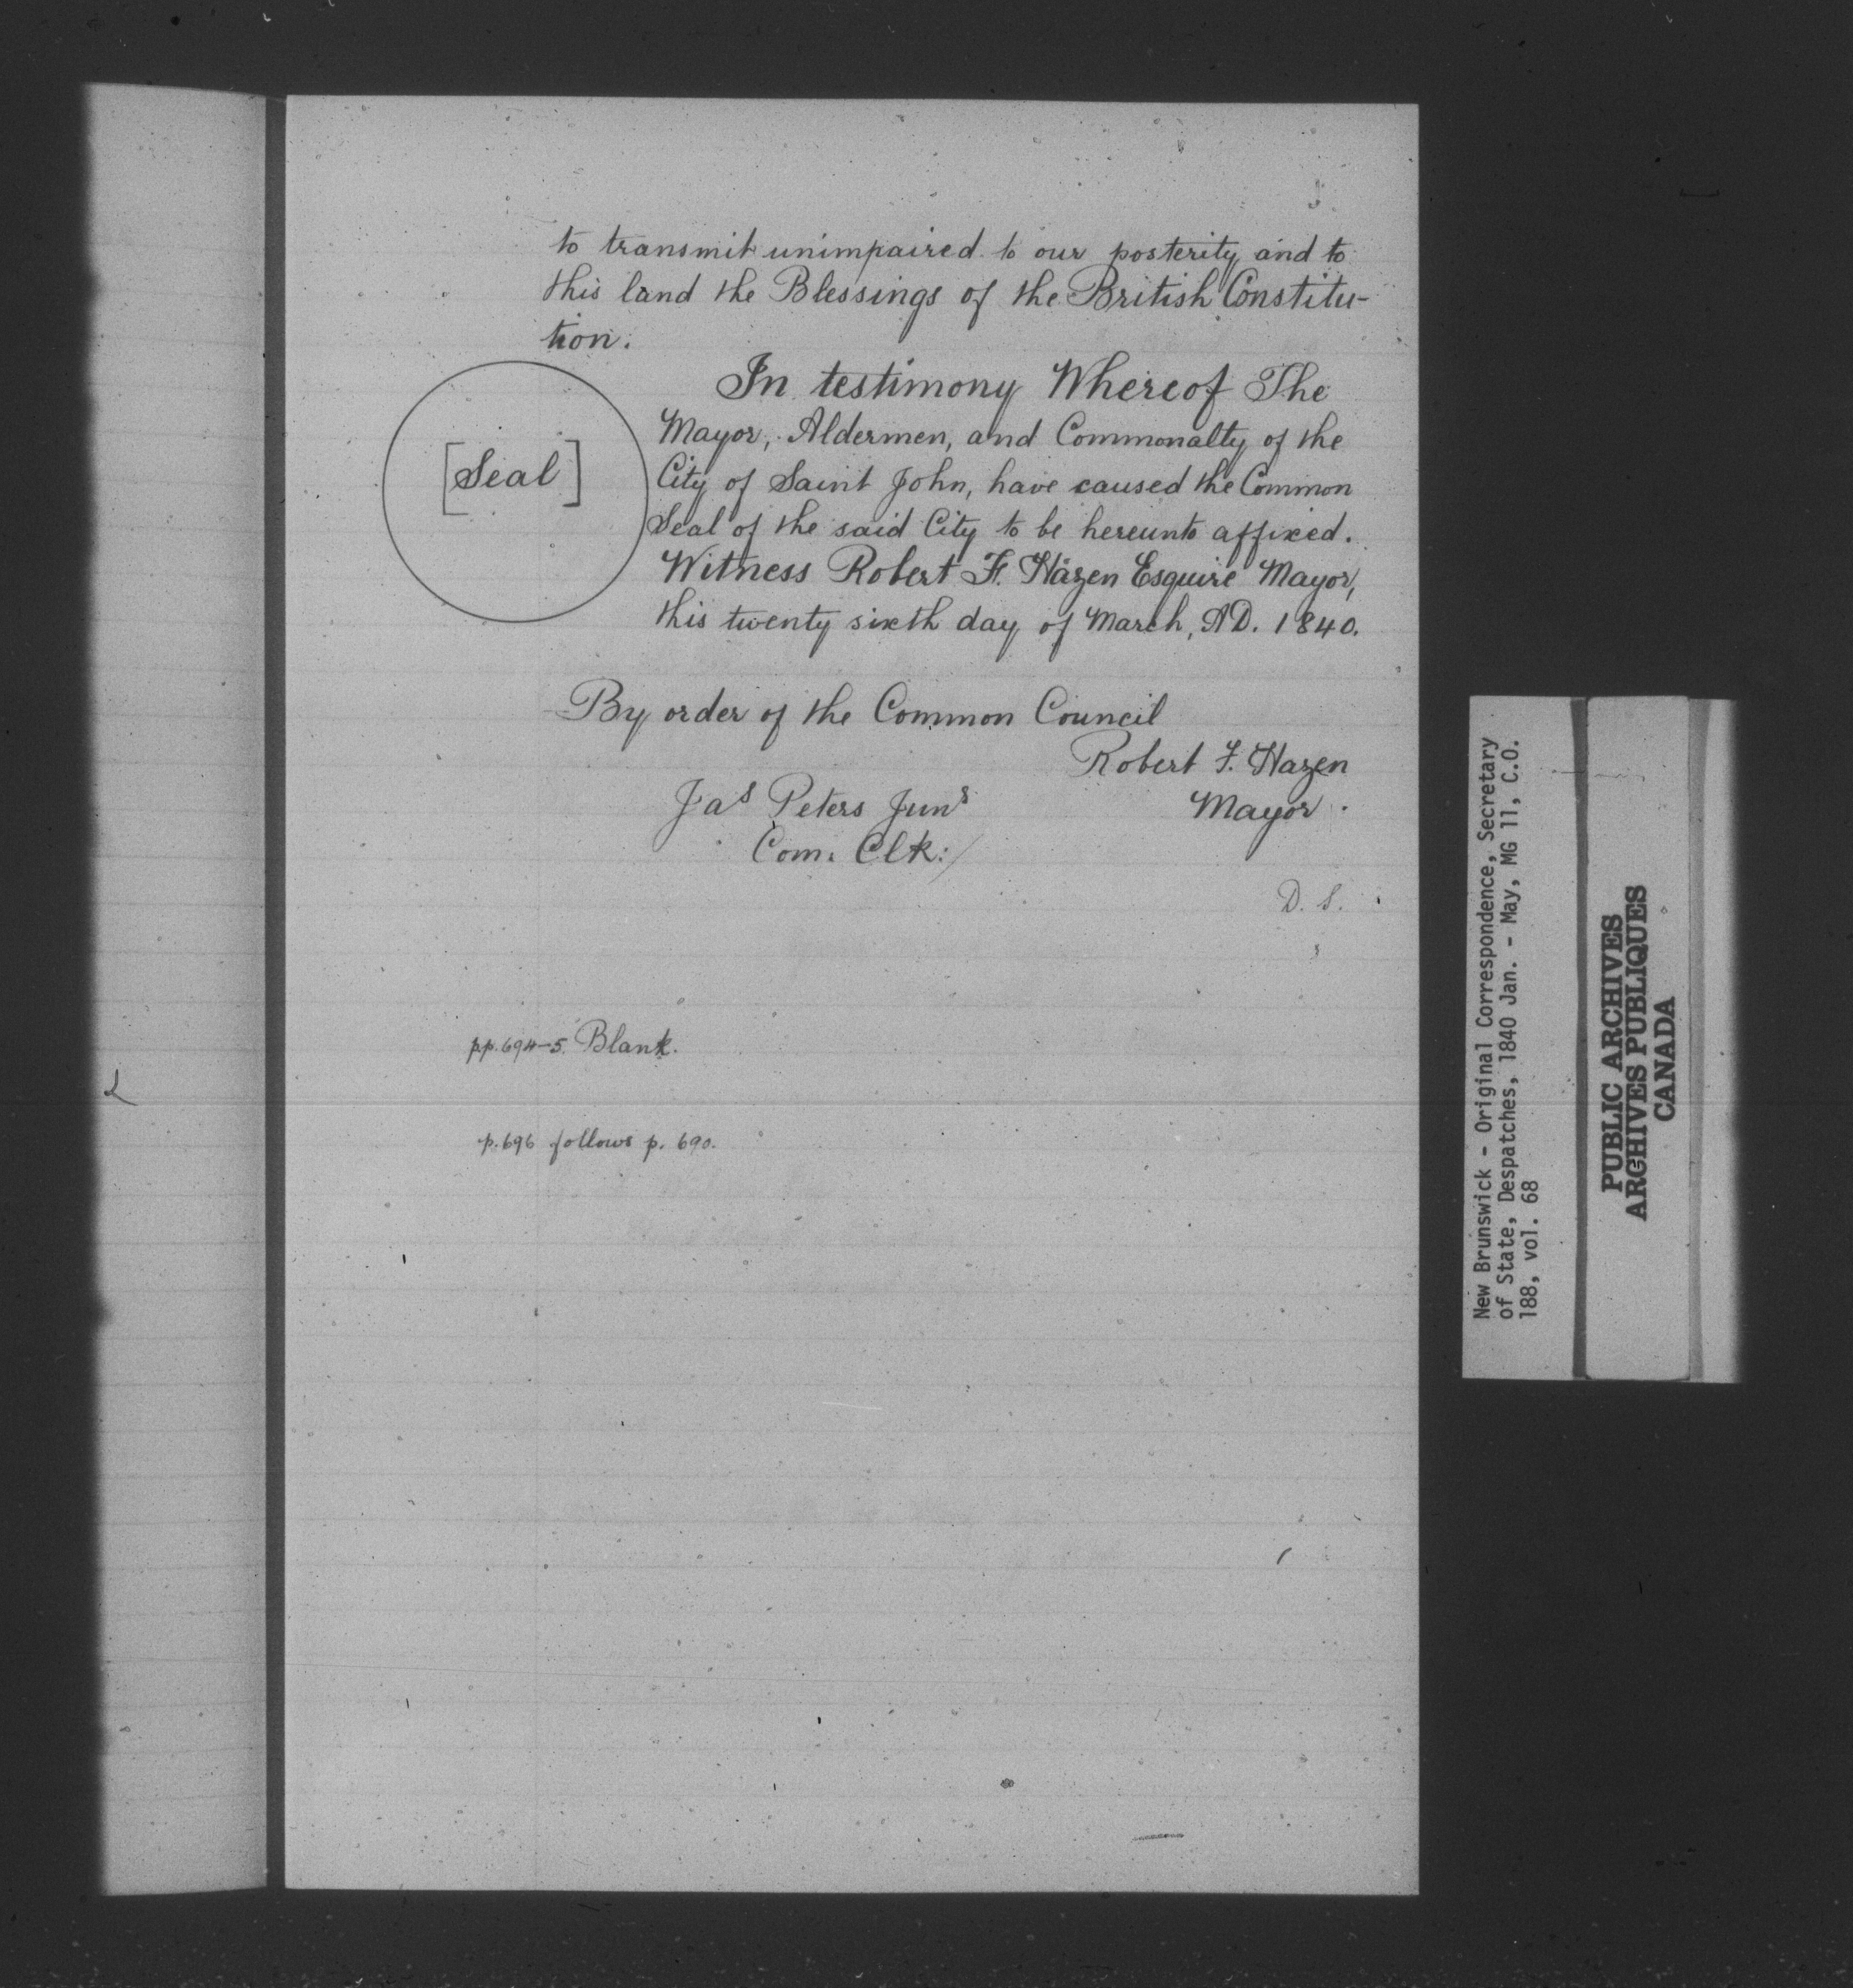 to transmit unimpaired to our posterity and to
this land the Blessings of the British Constitu-
tion.
In testimony Whereof The
Mayor, Aldermen, and Commonalty of the
[Seal]
City of Saint John, have caused the Common
Seal of the said City to be hereunto affixed.
Witness Robert F. Hazen Esquire Mayor,
this twenty sixth day of March, AD. 1840.
By order of the Common Council
Robert F. Hazen
Mayor.
Jas Peters Junr
Com. Clk:/
D. S.
pp. 694-5. Blank.
p. 696 follows p. 690.
New Brunswick - Original Correspondence, Secretary
of State, Despatches, 1840 Jan. - May, MG 11, C.O.
188, vol. 68
PUBLIC ARCHIVES
ARCHIVES PUBLIQUES
CANADA